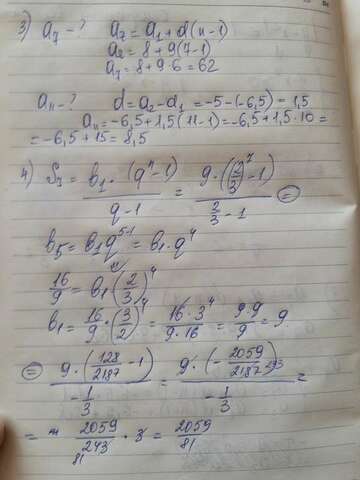 3) a₇ - ? a₇ = a₁ + d(n-1)
a₂ = 8 + 9(7-1)
a₇ = 8 + 9·6 = 62
a₁₁ - ? d = a₂ - a₁ = -5 - (-6,5) = 1,5
a₁₁ = -6,5 + 1,5(11-1) = -6,5 + 1,5·10 =
= -6,5 + 15 = 8,5
4) S₇ = b₁·(qⁿ-1)/(q-1) = 9·((2/3)⁷-1)/(2/3 - 1) =
b₅ = b₁q⁵⁻¹ = b₁·q⁴
16/9 = b₁(2/3)⁴
b₁ = 16/9·(3/2)⁴ = 16·3⁴/(9·16) = 9·9/9 = 9
= 9·(128/2187 - 1)/(-1/3) = 9·(-2059/2187 243)/(-1/3) =
= 2059/243 81 · 3 = 2059/81